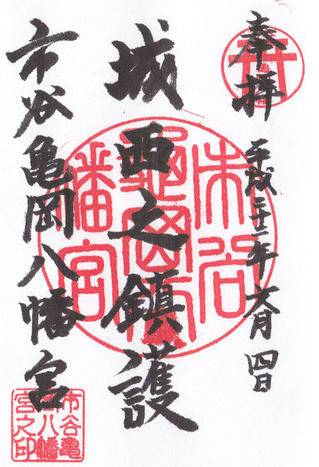 奉拝
平成二十二年六月四日
城西之鎮護
市谷亀岡八幡宮
市谷
亀岡八幡
宮之印